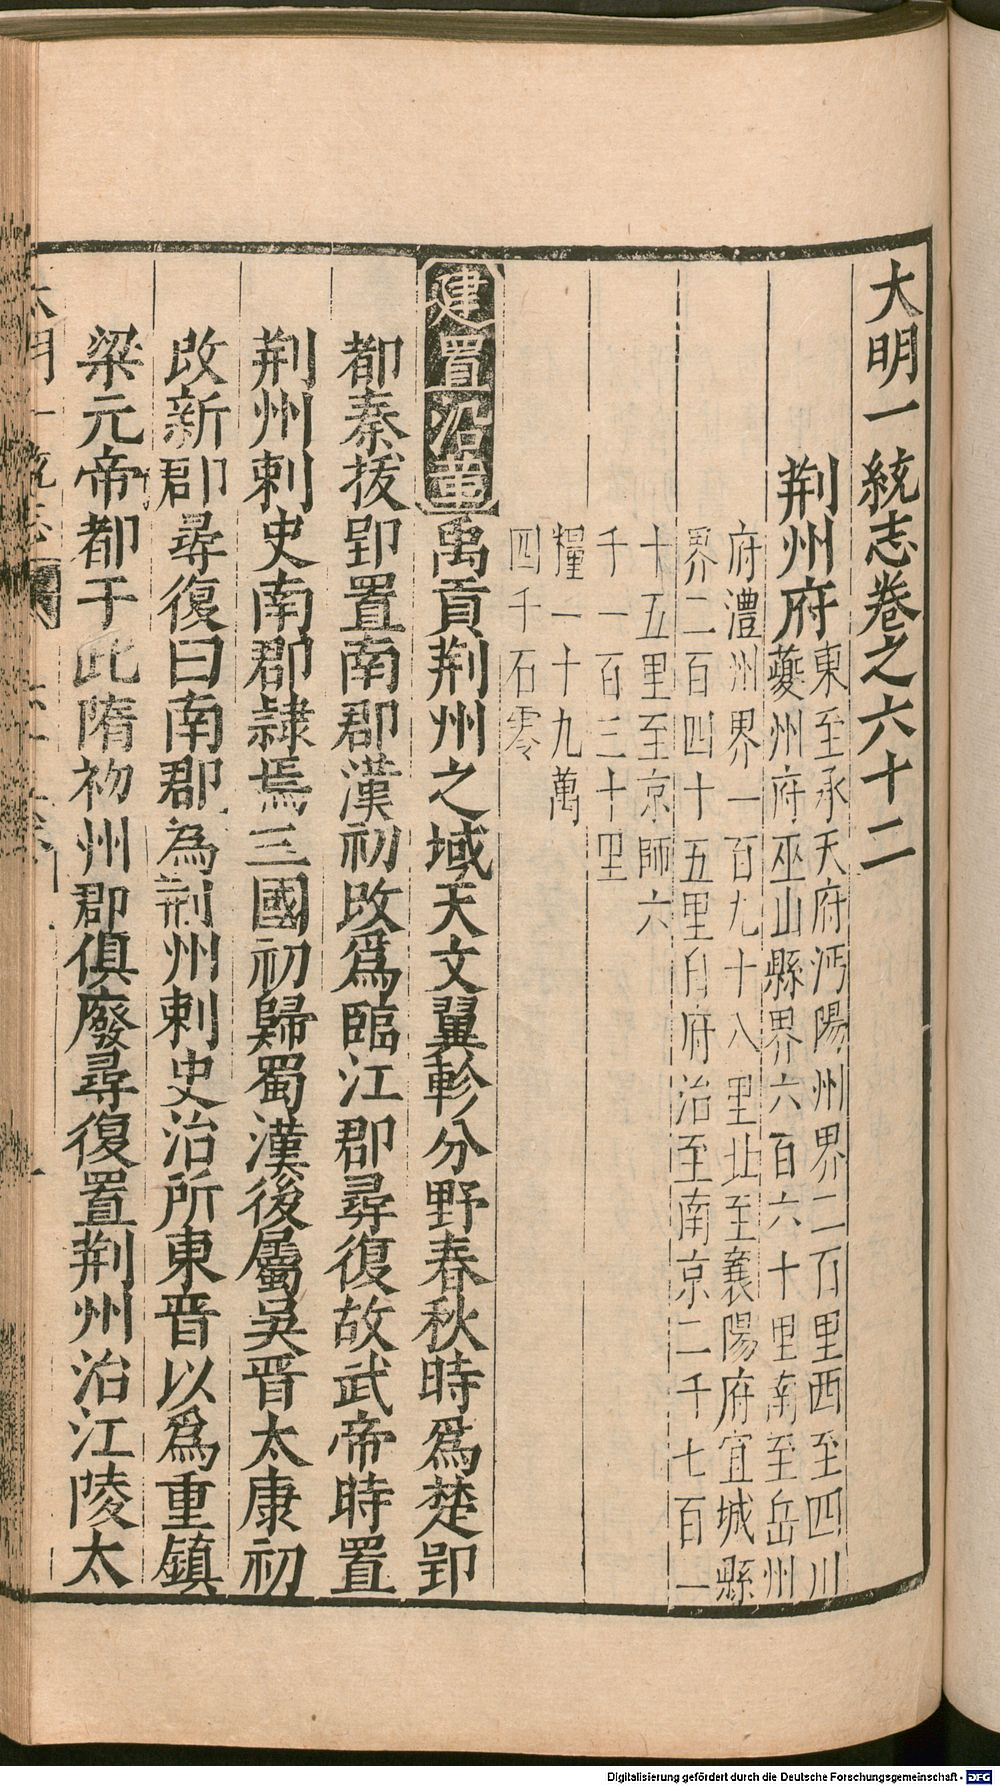 大明一統志卷之六十二
荆州府
東至承天府沔陽州界二百里西至四川
夔州府巫山縣界六百六十里南至岳州
府澧州界一百九十八里北至襄陽府宜城縣
界二百四十五里自府治至南京二千七百一
十五里至京師六
千一百三十里
糧一十九萬
四千石零
建置沿革禹貢荆州之域天文翼軫分野春秋時爲楚郢
都秦拔郢置南郡漢初改爲臨江郡尋復故武帝時置
荆州刺史南郡隷焉三國初歸蜀漢後屬吳晋太康初
改新郡尋復曰南郡為荆州刺史治所東晋以爲重鎮
梁元帝都于此隋初州郡俱廢尋復置荆州治江陵太
大明一統志
Digitalisierung gefördert durch die Deutsche Forschungsgemeinschaft - DFG